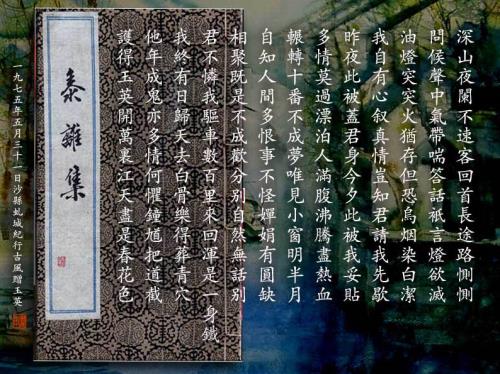 深山夜闌不速客回首長途路惻惻
問候聲中氣帶喘答話祇言燈欲滅
油燈突突火猶存但恐烏烟染白潔
我自有心叙真情豈知君請我先歇
昨夜此被蓋君身今夕此被我妥貼
多情莫過漂泊人滿腹沸騰盡熱血
輾轉十番不成夢唯見小窗明半月
自知人間多恨事不怪嬋娟有圓缺
相聚既是不成歡分別自然無話別
君不憐我驅車數百里來回渾是一身鐵
我終有日歸天去白骨樂得葬青穴
他年成鬼亦多情何懼鍾馗把道截
護得玉英開萬裏江天盡是春花色
黍離集
一九七五年五月三十一日沙縣虬城紀行古風贈玉英